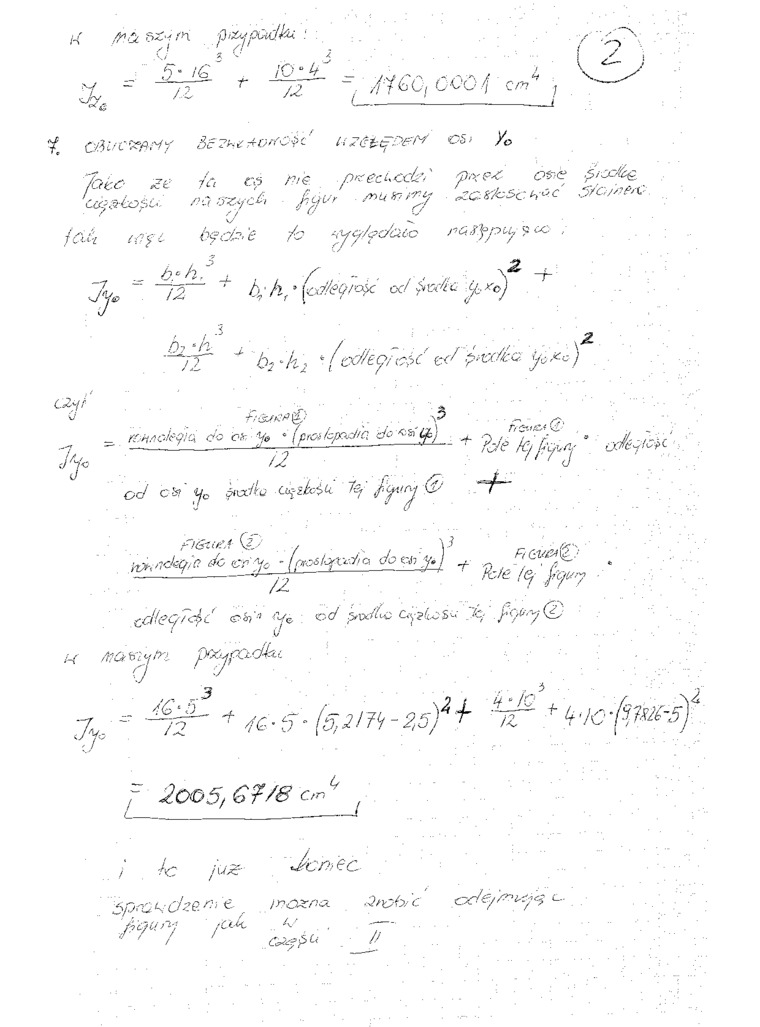 w naszym przypadku:
2
Jz₀ = 5·16³/12 + 10·4³/12 = 1760,0001 cm⁴
7. OBLICZAMY BEZWŁADNOŚĆ WZGLĘDEM OSI Y₀
Jako że ta oś nie przechodzi przez osie środka
ciężkości naszych figur musimy zastosować Stainera
tak więc będzie to wyglądało następująco:
Jy₀ = b₁·h₁³/12 + b₁·h₁·(odległość od środka y₀x₀)² +
b₂·h³/12 + b₂·h₂·(odległość od środka y₀x₀)²
czyli
FIGURA ① FIGURA ①
Jy₀ = równoległa do osi y₀ · (prostopadła do osi y₀)³/12 + Pole tej figury · odległość
od osi y₀ środka ciężkości tej figury ① +
FIGURA ② FIGURA ②
równoległa do osi y₀ · (prostopadła do osi y₀)³/12 + Pole tej figury ·
odległość osi y₀ od środka ciężkości tej figury ②
w naszym przypadku
Jy₀ = 16·5³/12 + 16·5·(5,2174-2,5)² + 4·10³/12 + 4·10·(9,7826-5)²
= 2005,6718 cm⁴
i to już koniec
sprawdzenie można zrobić odejmując
figury jak w
części II